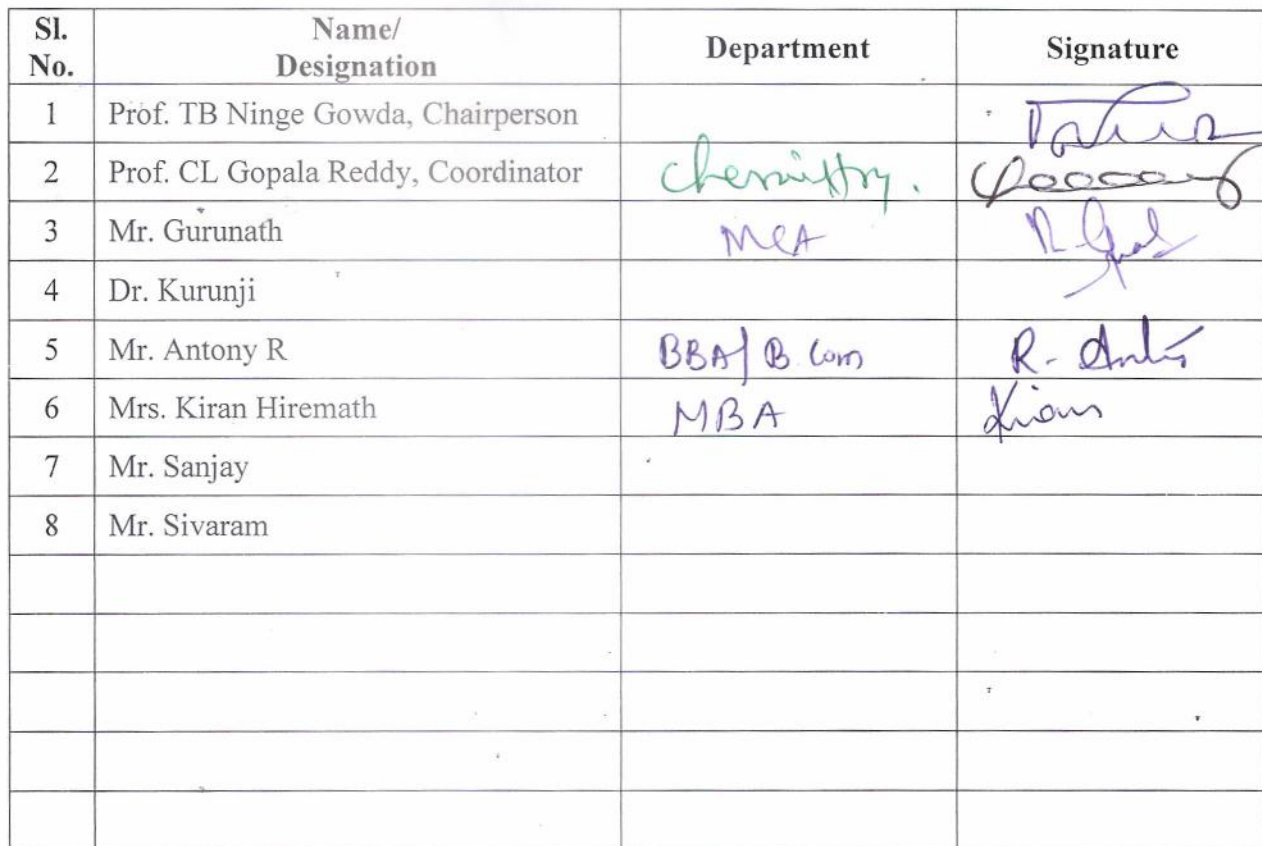 Sl. No. Name/ Designation Department Signature
1 Prof. TB Ninge Gowda, Chairperson
2 Prof. CL Gopala Reddy, Coordinator Chemistry.
3 Mr. Gurunath MCA
4 Dr. Kurunji
5 Mr. Antony R BBA/ B.Com R.
6 Mrs. Kiran Hiremath MBA Kiran
7 Mr. Sanjay
8 Mr. Sivaram